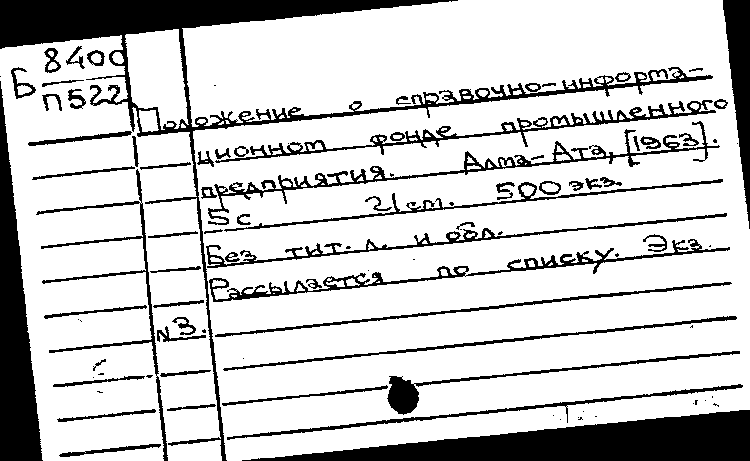 Б 8400
П522
Положение о справочно-информа-
ционном фонде промышленного
предприятия. Алма-Ата, [1963].
5 с. 21 см. 500 экз.
Без тит. л. и обл.
Рассылается по списку. Экз.
№ 3.